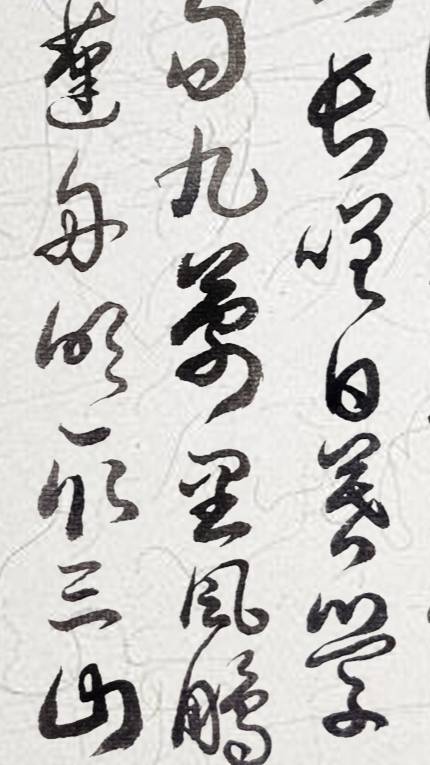 長嗟日暮學
句九萬里風鵬
蓬舟吹取三山